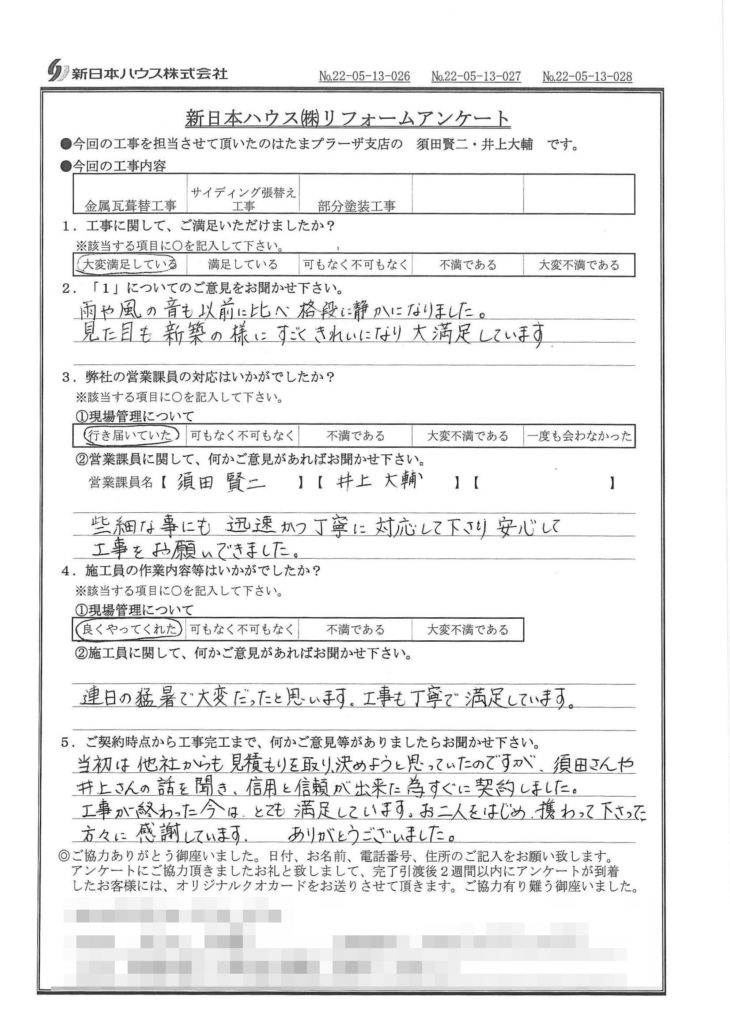 新日本ハウス株式会社
№22-05-13-026 №22-05-13-027 №22-05-13-028
新日本ハウス㈱リフォームアンケート
●今回の工事を担当させて頂いたのはたまプラーザ支店の 須田賢二・井上大輔 です。
●今回の工事内容
金属瓦葺替工事 サイディング張替え工事 部分塗装工事
1．工事に関して、ご満足いただけましたか？
※該当する項目に○を記入して下さい。
大変満足している 満足している 可もなく不可もなく 不満である 大変不満である
2．「1」についてのご意見をお聞かせ下さい。
雨や風の音も以前に比べ 格段に静かになりました。
見た目も 新築の様に すごく きれいになり 大満足しています
3．弊社の営業課員の対応はいかがでしたか？
※該当する項目に○を記入して下さい。
①現場管理について
行き届いていた 可もなく不可もなく 不満である 大変不満である 一度も会わなかった
②営業課員に関して、何かご意見があればお聞かせ下さい。
営業課員名【 須田 賢二 】【 井上 大輔 】【 】
些細な事にも 迅速かつ丁寧に 対応して下さり 安心して
工事をお願いできました。
4．施工員の作業内容等はいかがでしたか？
※該当する項目に○を記入して下さい。
①現場管理について
良くやってくれた 可もなく不可もなく 不満である 大変不満である
②施工員に関して、何かご意見があればお聞かせ下さい。
連日の猛暑で大変だったと思います。工事も丁寧で満足しています。
5．ご契約時点から工事完工まで、何かご意見等がありましたらお聞かせ下さい。
当初は他社からも見積もりを取り、決めようと思っていたのですが、須田さんや
井上さんの話を聞き、信用と信頼が出来た為すぐに契約しました。
工事が終わった今は、とても満足しています。お二人をはじめ、携わって下さった
方々に感謝しています。 ありがとうございました。
◎ご協力ありがとう御座いました。日付、お名前、電話番号、住所のご記入をお願い致します。
アンケートにご協力頂きましたお礼と致しまして、完了引渡後２週間以内にアンケートが到着
したお客様には、オリジナルクオカードをお送りさせて頂きます。ご協力有り難う御座いました。